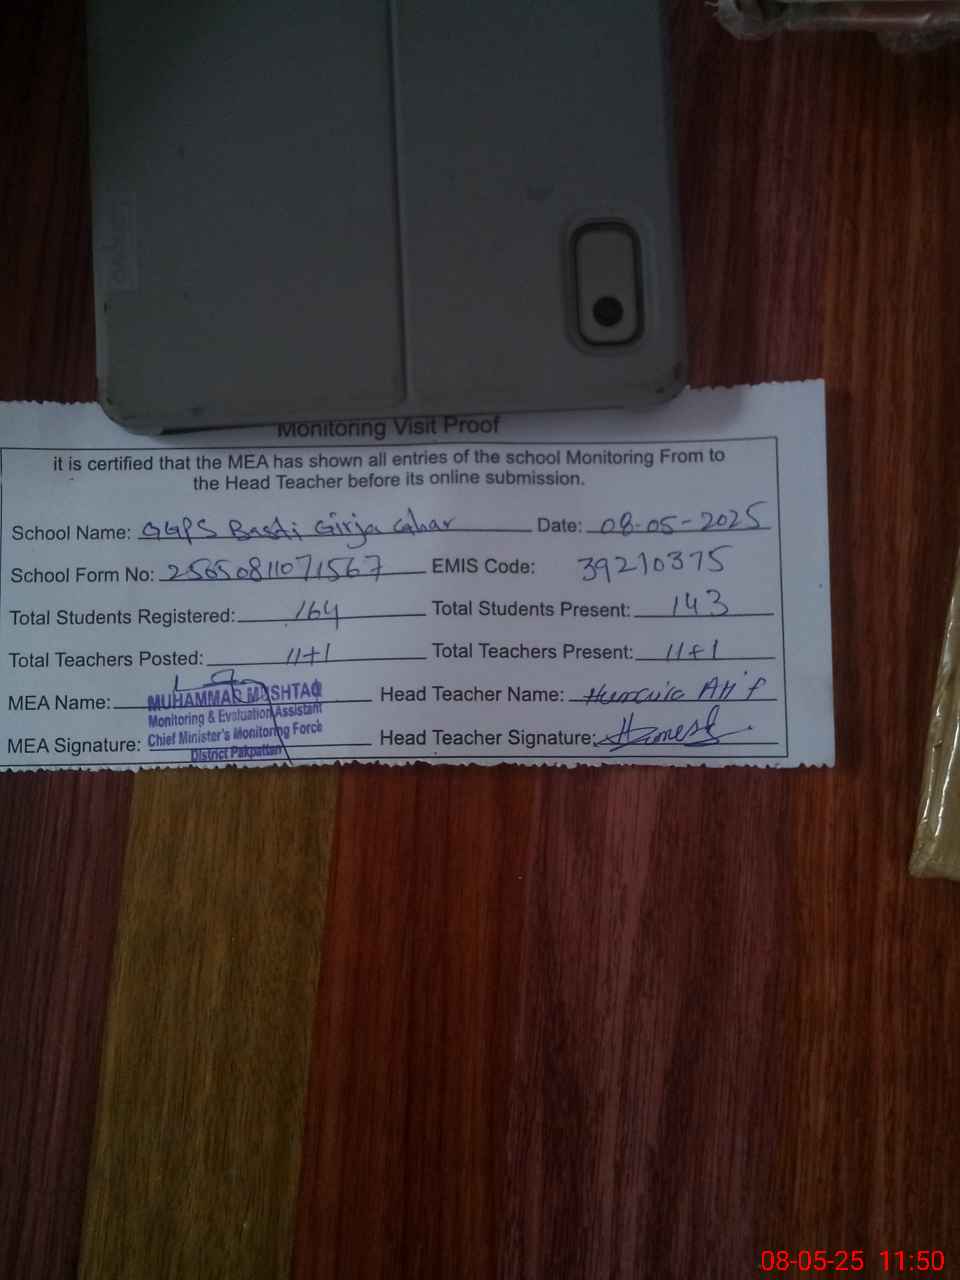 Monitoring Visit Proof
it is certified that the MEA has shown all entries of the school Monitoring From to
the Head Teacher before its online submission.
School Name: GGPS Basti Girja Ghar Date: 08-05-2025
School Form No: 2565081071567 EMIS Code: 39210375
Total Students Registered: 164 Total Students Present: 143
Total Teachers Posted: 11+1 Total Teachers Present: 11+1
MEA Name: MUHAMMAD MUSHTAQ Head Teacher Name:
Monitoring & Evaluation Assistant
MEA Signature: Chief Minister's Monitoring Force Head Teacher Signature:
District Pakpattan
08-05-25 11:50